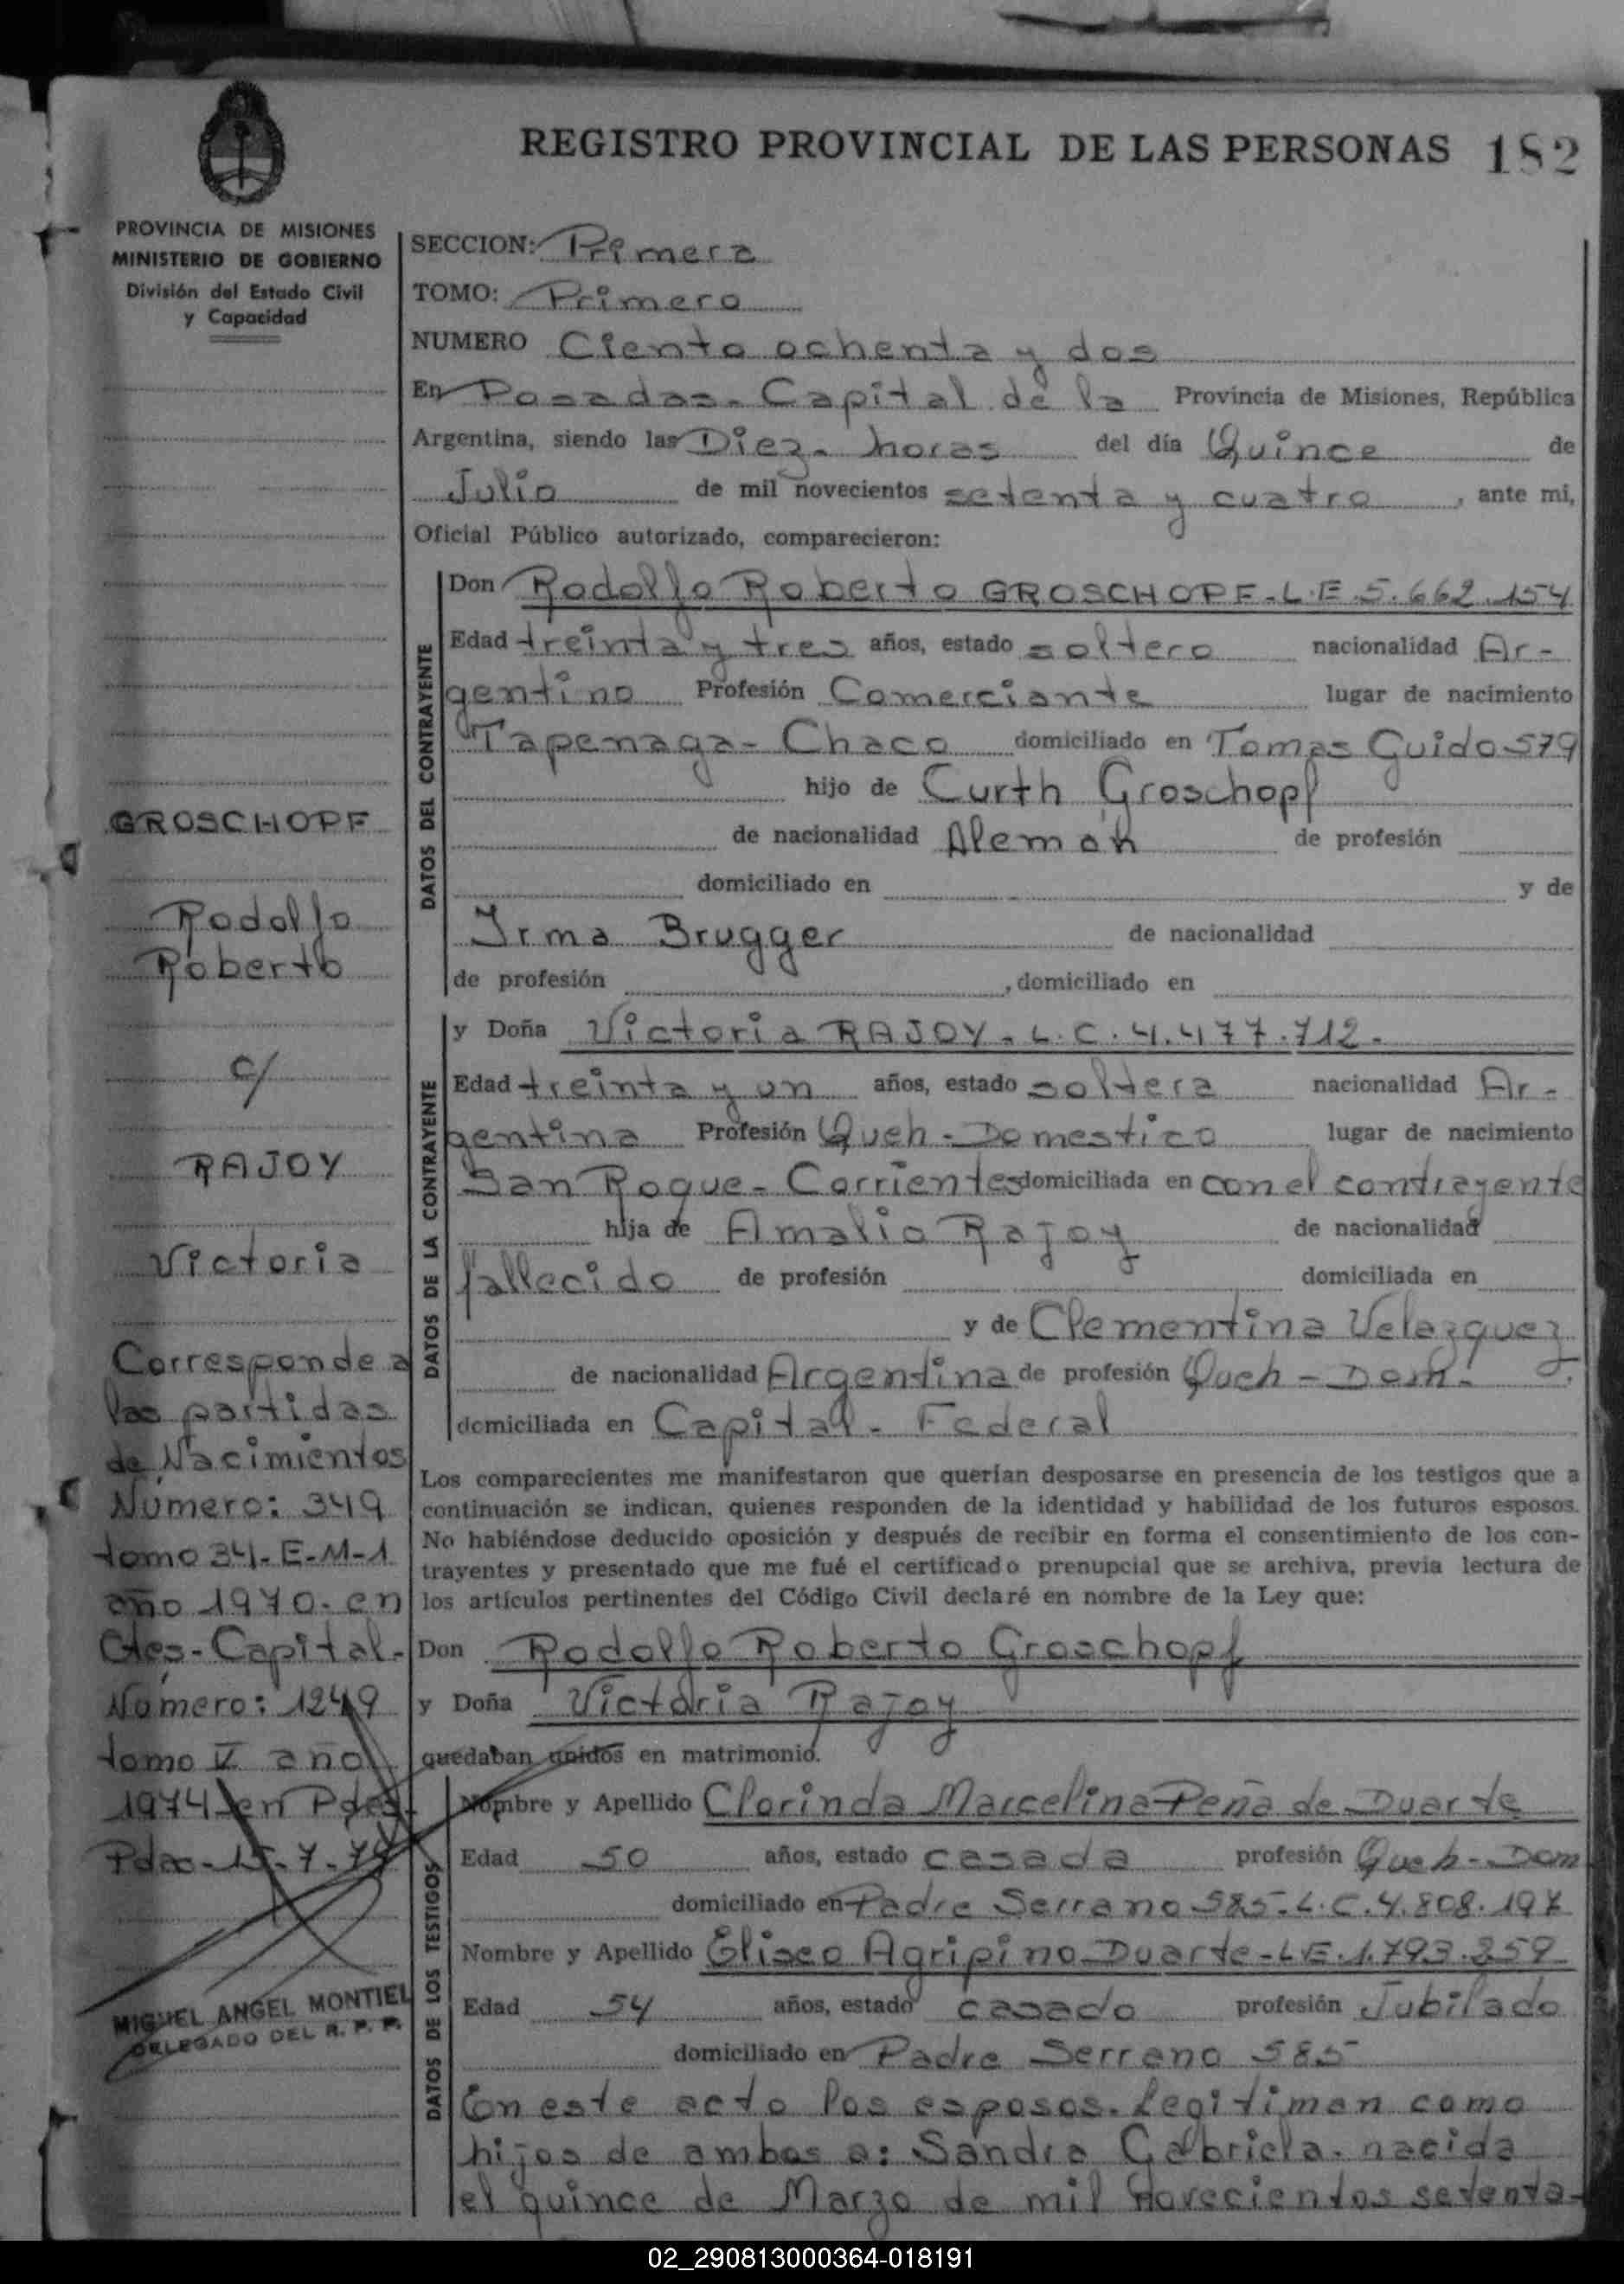 REGISTRO PROVINCIAL DE LAS PERSONAS 182
PROVINCIA DE MISIONES
MINISTERIO DE GOBIERNO
División del Estado Civil
y Capacidad
GROSCHOPF
Rodolfo
Roberto
c/
RAJOY
Victoria
Corresponde a
las partidas
de Nacimientos
Número: 349
tomo 34-E-M-1
año 1970-en
Ctes-Capital-
Número: 1249
tomo V año
1974 en Pdas.
Pdas-15-7-74
MIGUEL ANGEL MONTIEL
DELEGADO DEL R. P. P.
SECCION: Primera
TOMO: Primero
NUMERO Ciento ochenta y dos
En Posadas-Capital de la Provincia de Misiones, República
Argentina, siendo las Diez- horas del día Quince de
Julio de mil novecientos setenta y cuatro, ante mi,
Oficial Público autorizado, comparecieron:
DATOS DEL CONTRAYENTE
Don Rodolfo Roberto GROSCHOPF-L.E.5.662.154
Edad treinta y tres años, estado soltero nacionalidad Ar-
gentino Profesión Comerciante lugar de nacimiento
Tapenaga- Chaco domiciliado en Tomas Guido 579
hijo de Curth Groschopf
de nacionalidad Alemán de profesión
domiciliado en y de
Irma Brugger de nacionalidad
de profesión , domiciliado en
DATOS DE LA CONTRAYENTE
y Doña Victoria RAJOY-L.C.4.477.712-
Edad treinta y un años, estado soltera nacionalidad Ar-
gentina Profesión Queh-Domestico lugar de nacimiento
San Roque-Corrientes domiciliada en con el contrayente
hija de Amalio Rajoy de nacionalidad
fallecido de profesión domiciliada en
y de Clementina Velazquez
de nacionalidad Argentina de profesión Queh-Dom.
domiciliada en Capital-Federal
Los comparecientes me manifestaron que querían desposarse en presencia de los testigos que a
continuación se indican, quienes responden de la identidad y habilidad de los futuros esposos.
No habiéndose deducido oposición y después de recibir en forma el consentimiento de los con-
trayentes y presentado que me fué el certificado prenupcial que se archiva, previa lectura de
los artículos pertinentes del Código Civil declaré en nombre de la Ley que:
Don Rodolfo Roberto Groschopf
y Doña Victoria Rajoy
quedaban unidos en matrimonio.
DATOS DE LOS TESTIGOS
Nombre y Apellido Clorinda Marcelina Peña de Duarte
Edad 50 años, estado casada profesión Queh-Dom
domiciliado en Padre Serrano 585-L.C.4.808.197
Nombre y Apellido Eliseo Agripino Duarte-LE.1.793.259
Edad 54 años, estado casado profesión Jubilado
domiciliado en Padre Serrano 585
En este acto los esposos-legitiman como
hijos de ambos a: Sandra Gabriela-nacida
el quince de Marzo de mil novecientos setenta-
02_290813000364-018191